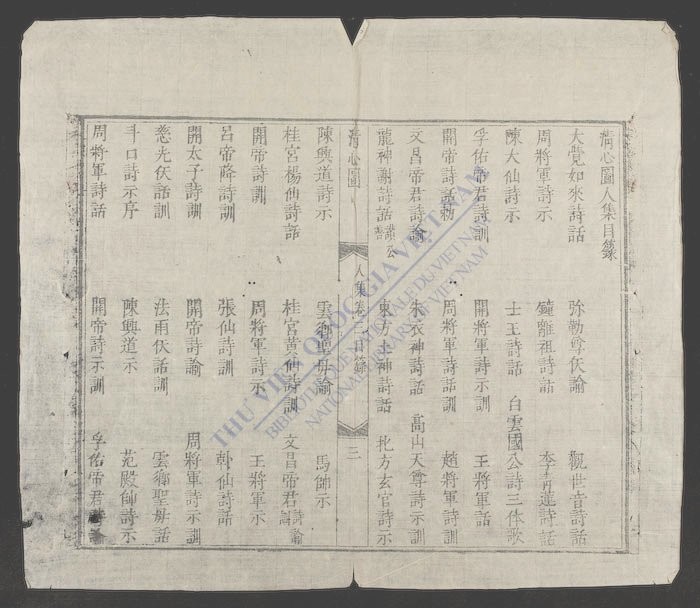 清心圖人集目錄
大覺如來詩話 弥勒尊佛諭 觀世音詩話
周將軍詩示 鐘離祖詩話 李青蓮詩話
陳大仙詩示 士王詩話 白雲國公詩三体歌
孚佑帝君詩訓 開將軍詩示訓 王將軍話
開帝詩話勅 周將軍詩話訓 趙將軍詩訓
文昌帝君詩諭 朱衣神詩話 高山天尊詩示訓
龍神謝詩話 東方朔神詩話 北方玄官詩示
清心圖 人集卷三目錄 三
陳興道詩示 雲鄉聖母諭 馬帥示
桂宮楊仙詩話 桂宮黃仙詩訓 文昌帝君詩諭
開帝詩訓 周將軍詩示 王將軍示
呂帝降詩訓 張仙詩訓 乩仙詩話
開太子詩訓 開帝詩諭 周將軍詩示訓
慈光佛話訓 法雨佛話訓 雲鄉聖母話
斗口詩示序 陳興道示 范殿帥詩示
周將軍詩話 開帝詩示訓 孚佑帝君詩諭
THƯ VIỆN QUỐC GIA VIỆT NAM
BIBLIOTHÈQUE NATIONALE DU VIETNAM
NATIONAL LIBRARY OF VIETNAM